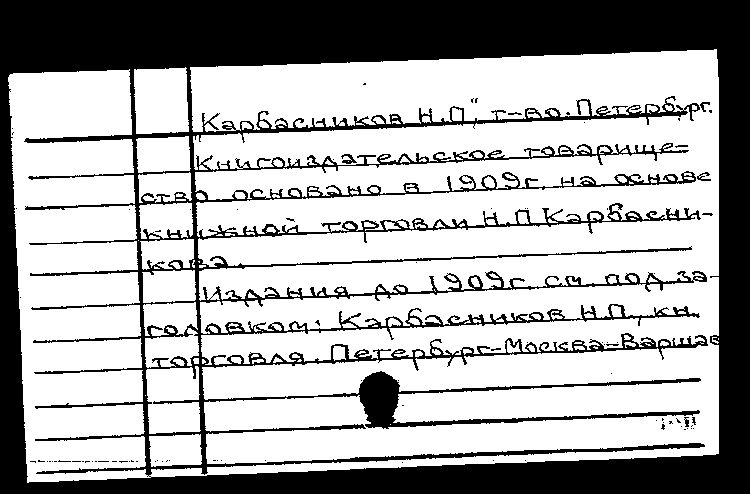 "Карбасников Н.П.", т-во. Петербург.
Книгоиздательское товарище-
ство основано в 1909г. на основе
книжной торговли Н.П. Карбасни-
кова.
Издания до 1909г. см. под за-
головком: Карбасников Н.П., кн.
торговля. Петербург-Москва-Варшав